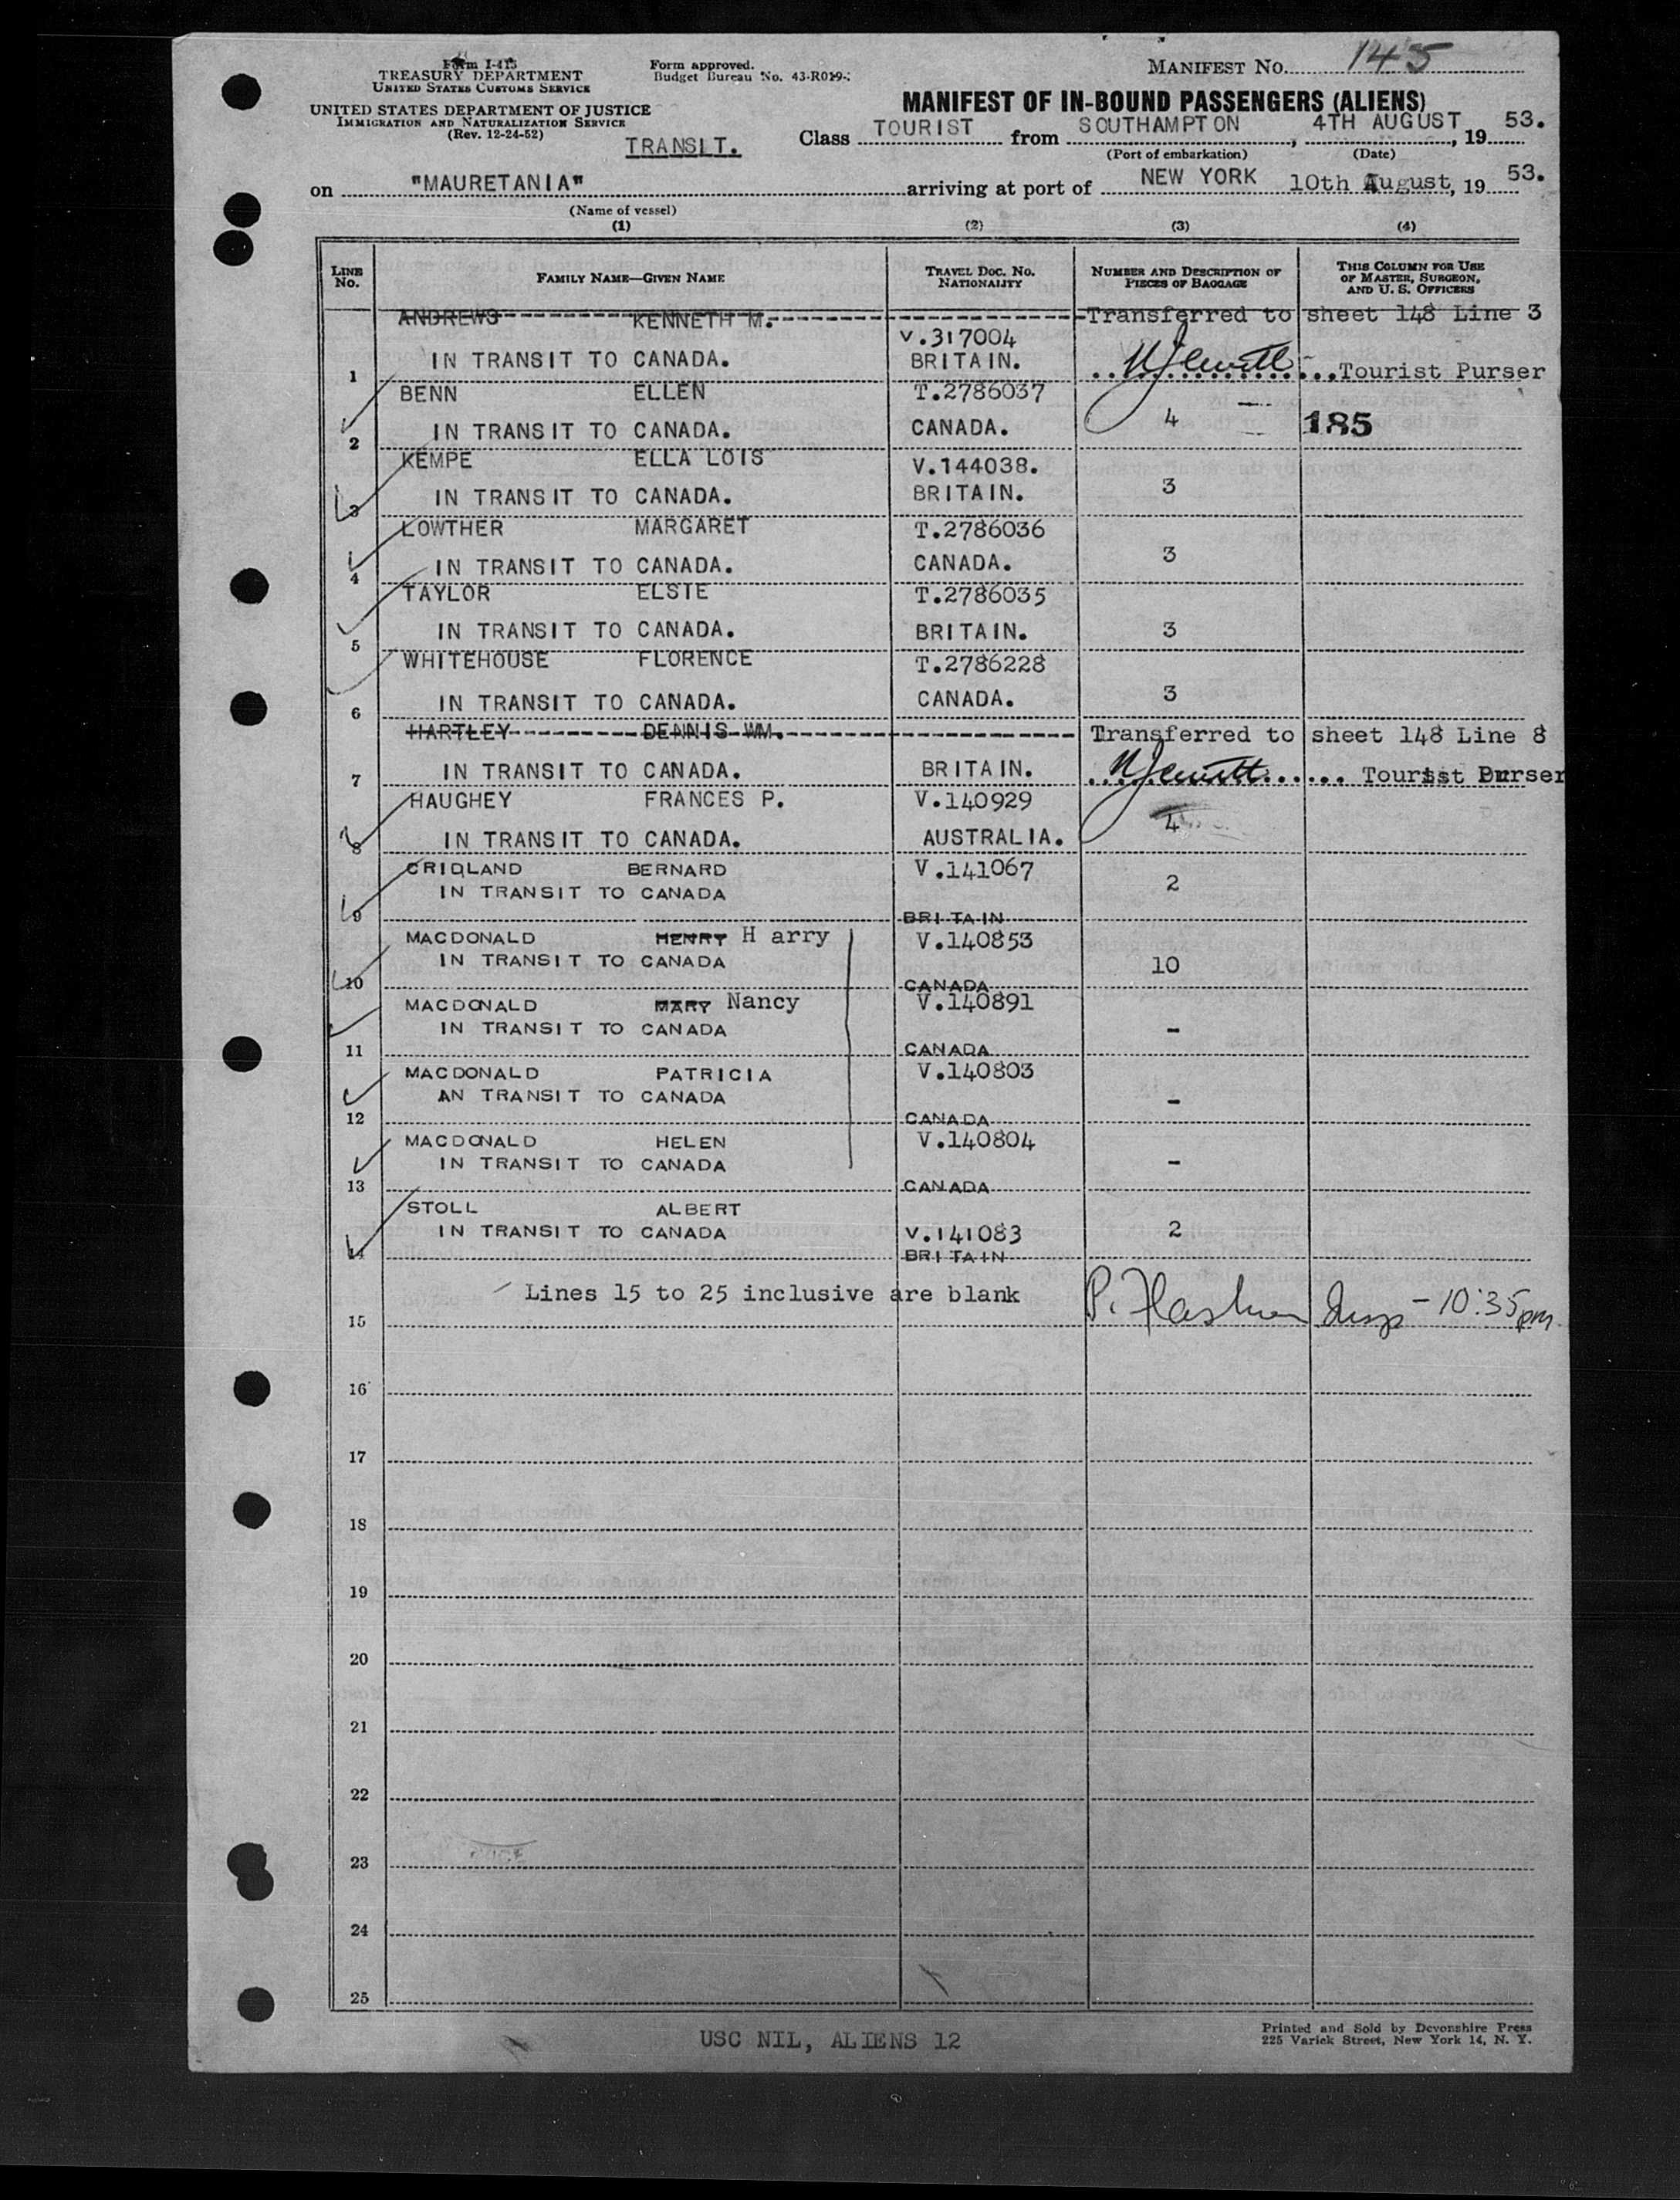 Form I-415
TREASURY DEPARTMENT
UNITED STATES CUSTOMS SERVICE
UNITED STATES DEPARTMENT OF JUSTICE
IMMIGRATION AND NATURALIZATION SERVICE
(Rev. 12-24-52)
Form approved.
Budget Bureau No. 43-R019-
TRANSIT.
MANIFEST NO. 145
MANIFEST OF IN-BOUND PASSENGERS (ALIENS)
Class TOURIST from SOUTHAMPTON, 4TH AUGUST, 19 53.
(Port of embarkation) (Date)
on "MAURETANIA" arriving at port of NEW YORK 10th August, 19 53.
(Name of vessel)
(1) (2) (3) (4)
LINE NO. FAMILY NAME—GIVEN NAME TRAVEL DOC. NO. NATIONALITY NUMBER AND DESCRIPTION OF PIECES OF BAGGAGE THIS COLUMN FOR USE OF MASTER, SURGEON, AND U. S. OFFICERS
ANDREWS KENNETH M. Transferred to sheet 148 Line 3
V.317004
1 IN TRANSIT TO CANADA. BRITAIN. Tourist Purser
BENN ELLEN T.2786037
2 IN TRANSIT TO CANADA. CANADA. 4 185
KEMPE ELLA LOIS V.144038.
3 IN TRANSIT TO CANADA. BRITAIN. 3
LOWTHER MARGARET T.2786036
4 IN TRANSIT TO CANADA. CANADA. 3
TAYLOR ELSIE T.2786035
5 IN TRANSIT TO CANADA. BRITAIN. 3
WHITEHOUSE FLORENCE T.2786228
6 IN TRANSIT TO CANADA. CANADA. 3
HARTLEY DENNIS WM. Transferred to sheet 148 Line 8
7 IN TRANSIT TO CANADA. BRITAIN. Tourist Purser
HAUGHEY FRANCES P. V.140929
8 IN TRANSIT TO CANADA. AUSTRALIA. 4
CRIDLAND BERNARD V.141067
IN TRANSIT TO CANADA 2
9 BRITAIN
MACDONALD HENRY H arry V.140853
IN TRANSIT TO CANADA 10
10 CANADA
MACDONALD MARY Nancy V.140891
IN TRANSIT TO CANADA -
11 CANADA
MACDONALD PATRICIA V.140803
AN TRANSIT TO CANADA -
12 CANADA
MACDONALD HELEN V.140804
IN TRANSIT TO CANADA -
13 CANADA
STOLL ALBERT
IN TRANSIT TO CANADA V.141083 2
14 BRITAIN
Lines 15 to 25 inclusive are blank P. Insp - 10:35pm
15
16
17
18
19
20
21
22
23
24
25
USC NIL, ALIENS 12
Printed and Sold by Devonshire Press
225 Varick Street, New York 14, N. Y.